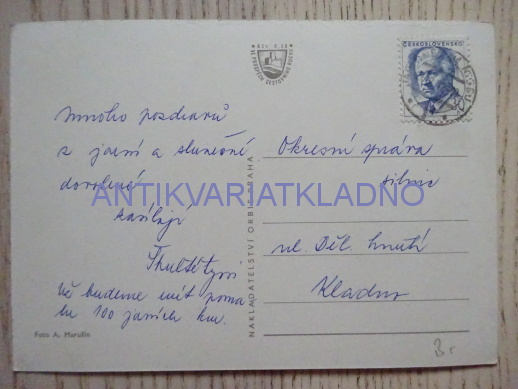 ČESKOSLOVENSKO
Mnoho pozdravů
z jarní a slunečné
dovolené
zasílají
Škultétyovi
Už budeme mít poma
lu 100 jarních km.
Foto A. Marušin
NAKLADATELSTVÍ ORBIS PRAHA
Okresní správa
silnic
ul. Děl. hnutí
Kladno
Br
ANTIKVARIATKLADNO